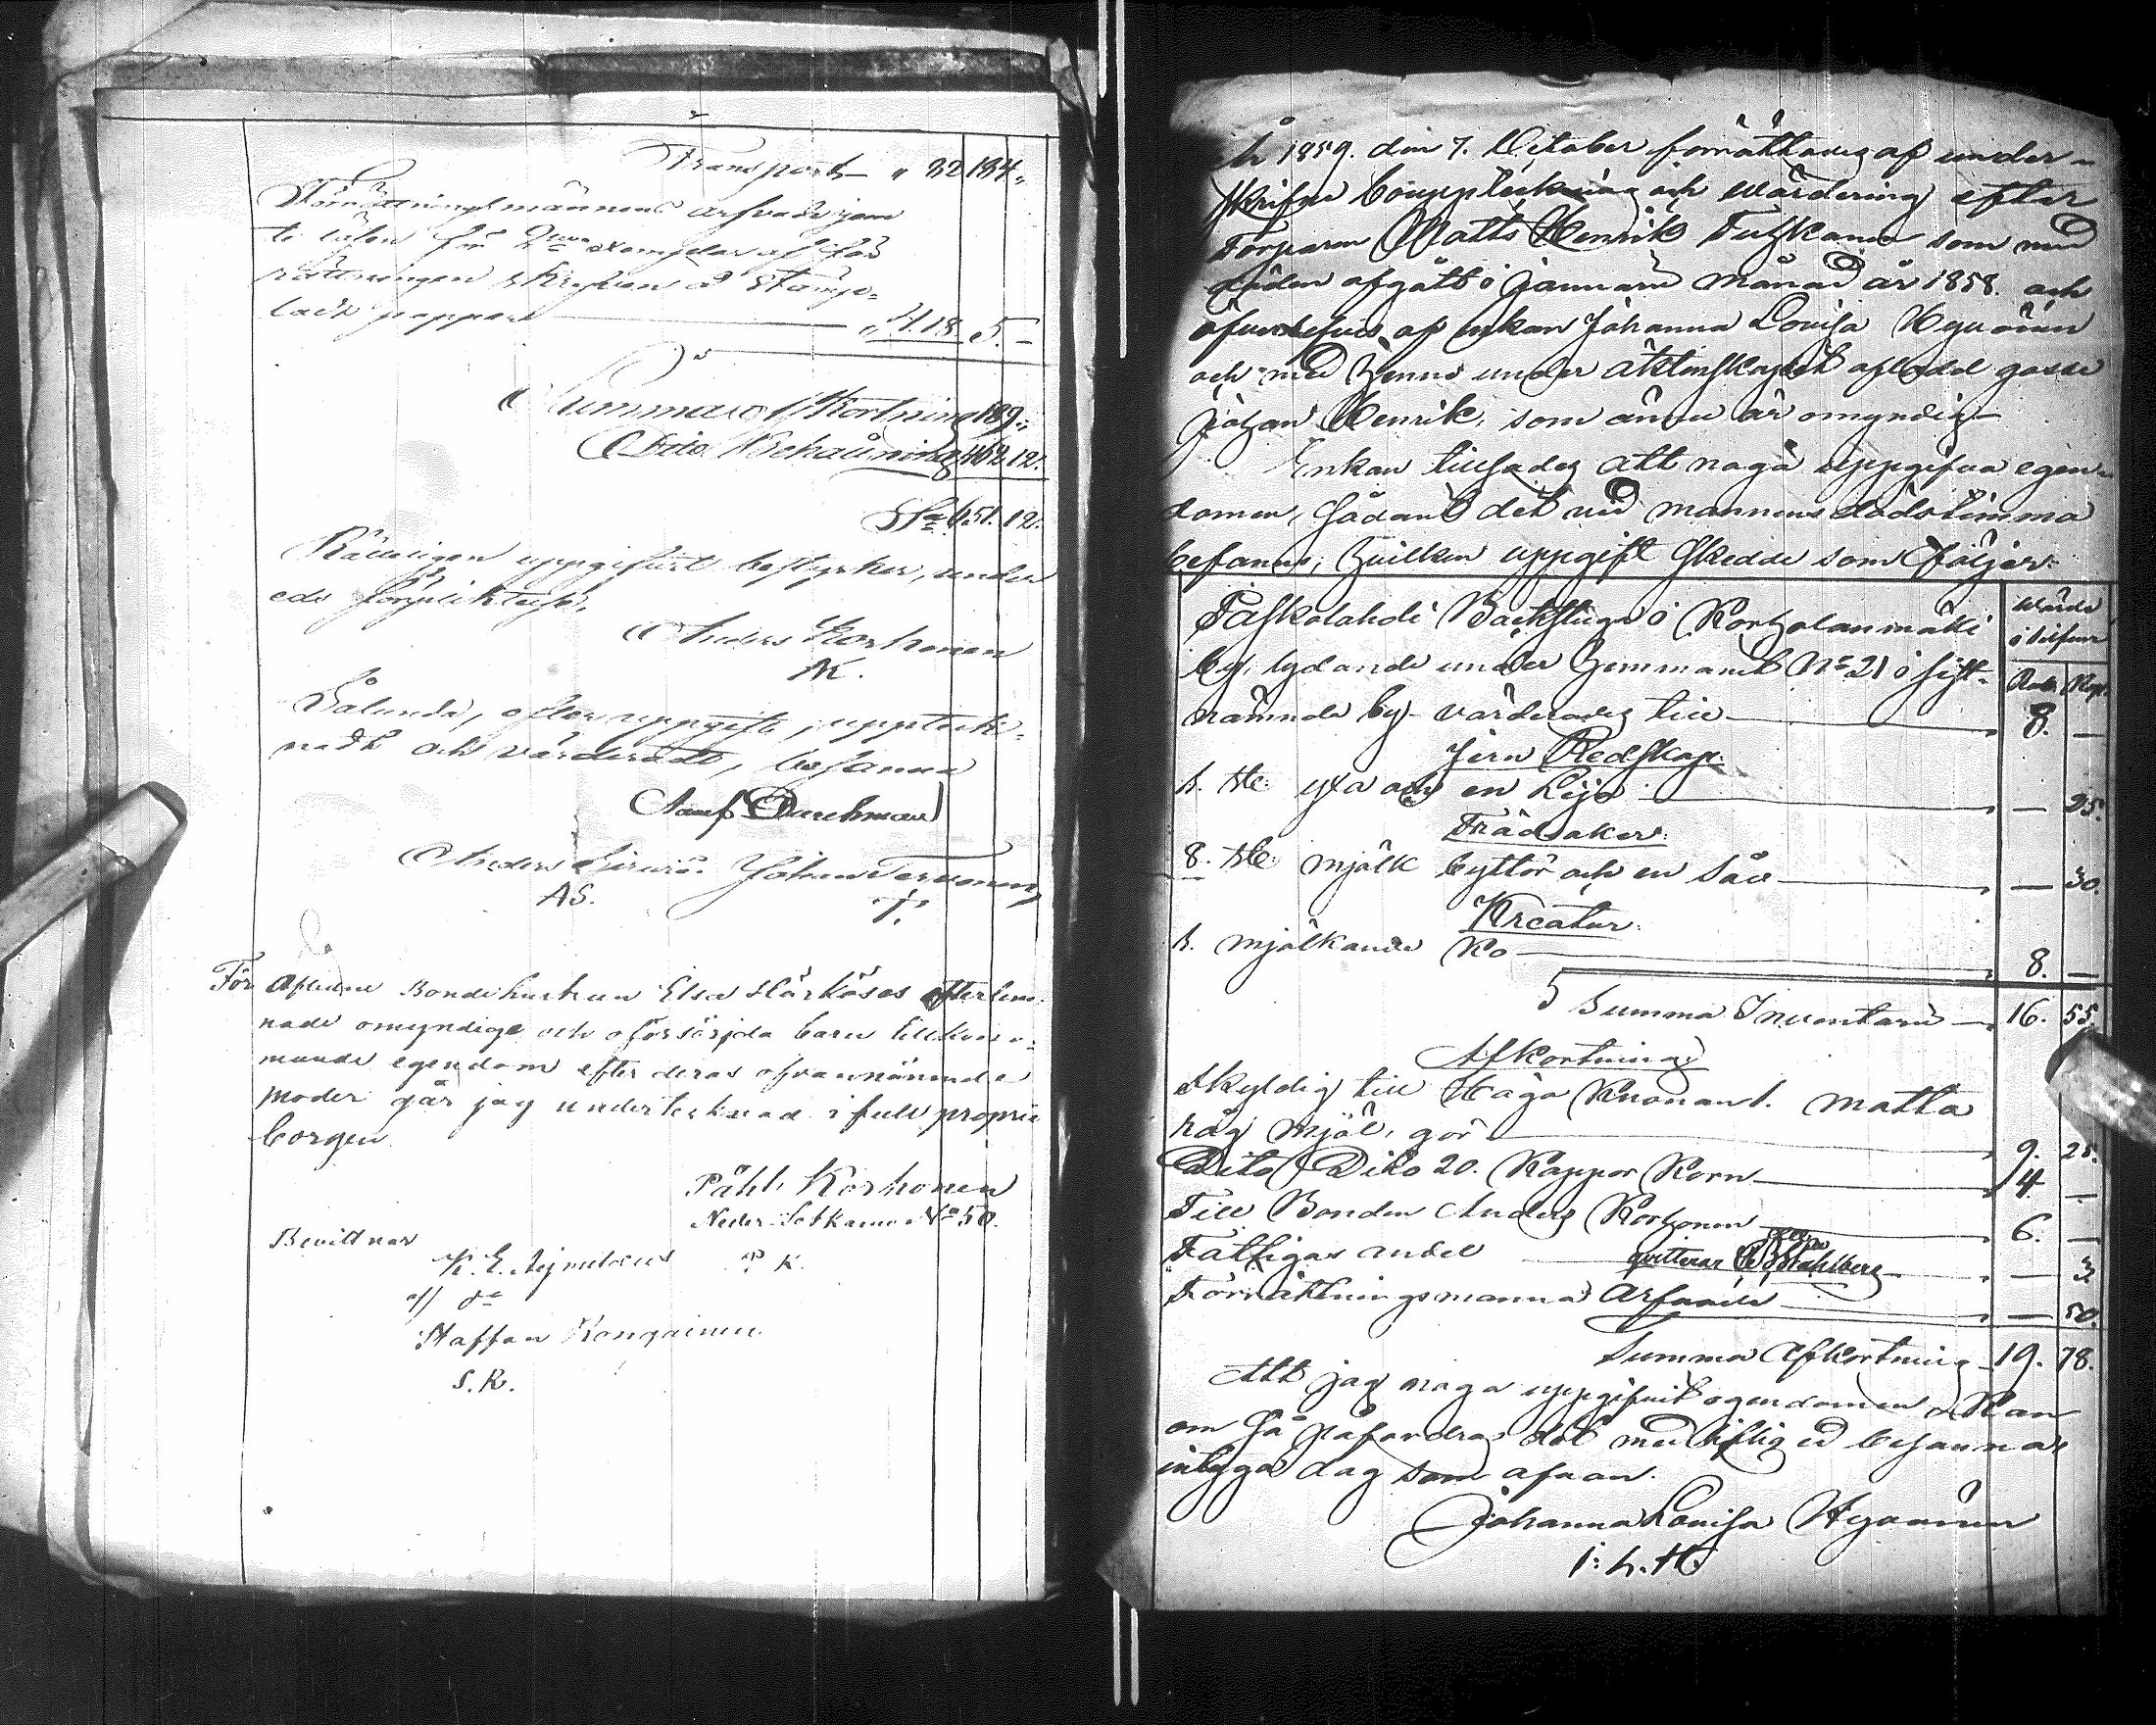 2
Transport " 32 184 "
Förrättningsmännens arfvode jem-
te lösen för 2ne exemplar af för
rättningen skrifven å Stämp-
ladt papper " 4.18 5. –
Summa afkortning 189. "
Dito Behållning 462. 12.
Sa 651. 12.
Rätteligen uppgifvit bestyrker, under
eds förpliktelse,
Anders Korhonen
AK.
Sålunda, efter uppgift, upptek-
nadt och värderadt, befanns
Anders Johan Tervonen
AS.
För Aflidne Bondehustrun Elsa Härköses efterlem-
nade omyndige och oförsörjda barn tillkom-
mande egendom efter deras ofvannämnde
moder går jag undertecknad i full proprie
borgen
Påhl Korhonen
Neder Sotkamo No 50.
P K.
Bevittnar
K. E.
Staffan Kongainen
S. K.
År 1859. den 7. October förrättades af under-
skrifne bouppteckning och värdering efter
Torparen Matts Henrik Tuhkanen som med
döden afgått i Januarii månad år 1858. och
öfverlefves af enkan Johanna Lovisa Hyvönen
och med henne under äktenskapet aflade gosse
Johan Henrik, som ännu är omyndig –
Enkan tillsades att noga uppgifva egen-
domen, sådant det vid mannens dödstimma
befanns; hvilken uppgift skedde som följer:
Värde
i silfver
Rub. Kop.
Backstuga i Korholanmäki
by, lydande under hemmanet No 21 i sist-
nämnde by värderades till 8. –
Jern Redskap:
1. st: yxa och en Lija – 25.
Trädsaker:
8. st: mjölk byttor och en så – 30.
Kreatur:
1. mjölkande Ko 8. –
Summa Inventarii 16. 55.
Afkortning
Skyldig till Kånan 1. matta
råg mjöl, gör 9. 25.
Dito Dito 20. Kappor Korn 4 –
Till Bonden Anders Korhonen 6. –
Fattigas andel qvitteras Stahlberg – 3
Förrättningsmanna Arfvode – 50.
Summa Afkortning 19. 78.
Att jag noga uppgifvit egendomen & kan
om så påfordras det med liflig ed besanna,
intyga dag som ofvan.
Johanna Lovisa Hyvönen
I. L. H.